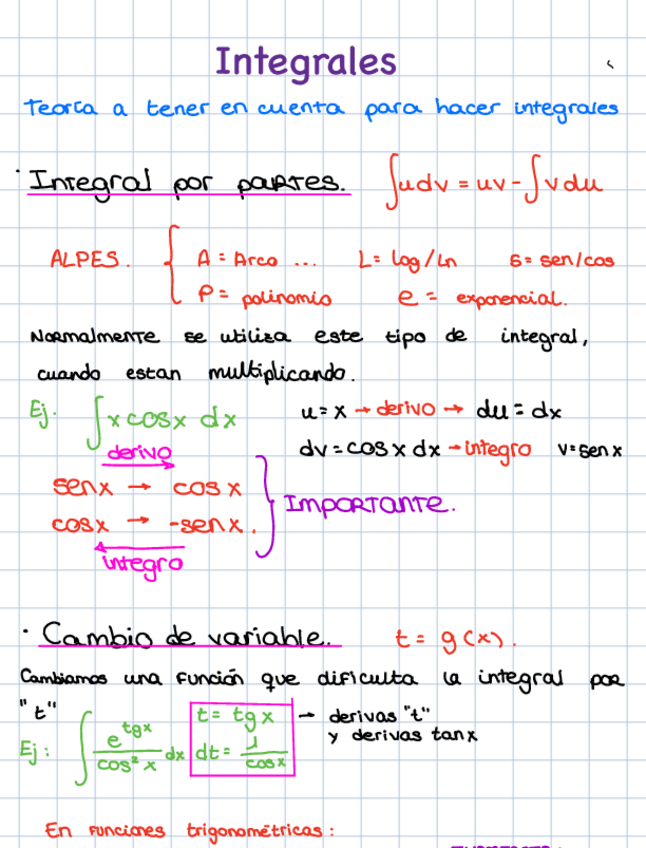 Integrales
Teoría a tener en cuenta para hacer integrales
· Integral por partes. ∫udv = uv - ∫vdu
ALPES. { A = Arco ... L = log/Ln S = sen/cos
P = polinomio e = exponencial.
Normalmente se utiliza este tipo de integral,
cuando estan multiplicando.
Ej. ∫x cosx dx u = x → derivo → du = dx
derivo dv = cosx dx → integro v = sen x
senx → cosx
} Importante.
cosx → -senx.
integro
· Cambio de variable. t = g(x).
Cambiamos una función que dificulta la integral por
"t" t = tgx → derivas "t"
y derivas tanx
Ej: ∫ e^tgx / cos² x dx dt = 1 / cosx
En funciones trigonométricas: